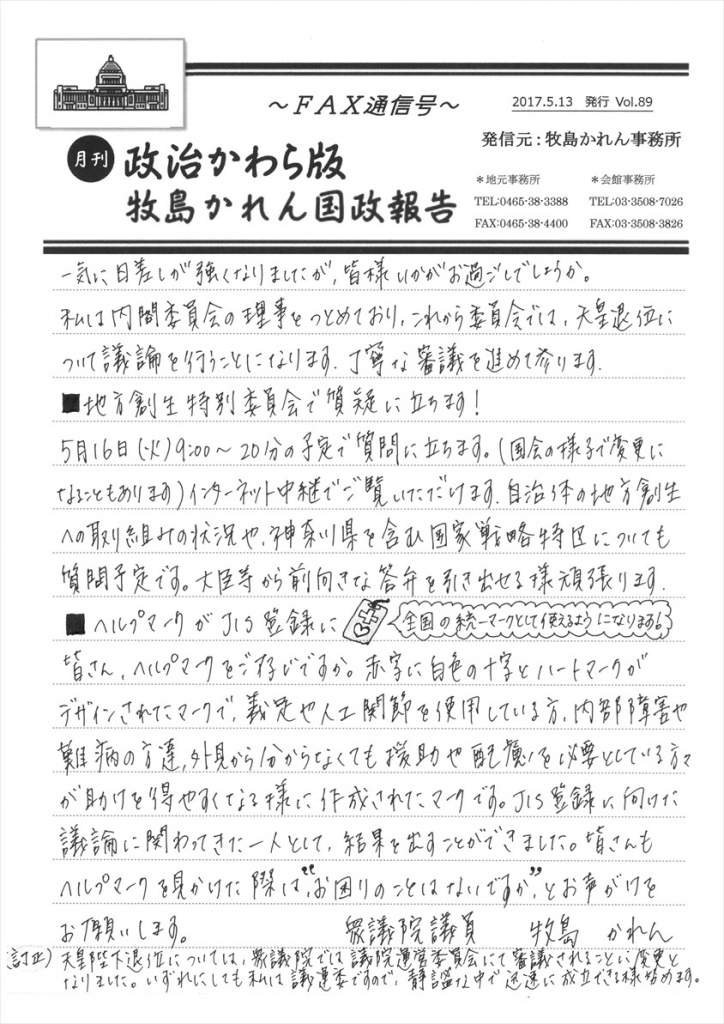 ～FAX通信号～
2017.5.13 発行 Vol.89
発信元：牧島かれん事務所
月刊 政治かわら版
牧島かれん国政報告
＊地元事務所 ＊会館事務所
TEL:0465-38-3388 TEL:03-3508-7026
FAX:0465-38-4400 FAX:03-3508-3826
一気に日差しが強くなりましたが、皆様いかがお過ごしでしょうか。
私は内閣委員会の理事をつとめており、これから委員会では、天皇退位に
ついて議論を行うことになります。丁寧な審議を進めて参ります。
■地方創生特別委員会で質疑に立ちます！
5月16日(火)9:00～20分の予定で質問に立ちます。(国会の様子で変更に
なることもあります)インターネット中継でご覧いただけます。自治体の地方創生
への取り組みの状況や、神奈川県を含む国家戦略特区についても
質問予定です。大臣等から前向きな答弁を引き出せる様頑張ります。
■ヘルプマークがJIS登録に 全国の統一マークとして使えるようになります！
皆さん、ヘルプマークをご存じですか。赤字に白色の十字とハートマークが
デザインされたマークで、義足や人工関節を使用している方、内部障害や
難病の方達、外見から分からなくても援助や配慮を必要としている方々
が助けを得やすくなる様に作成されたマークです。JIS登録に向けた
議論に関わってきた一人として、結果を出すことができました。皆さんも
ヘルプマークを見かけた際は“お困りのことはないですか”とお声がけを
お願いします。 衆議院議員 牧島 かれん
(訂正) 天皇陛下退位については、衆議院では議院運営委員会にて審議されることに変更と
なりました。いずれにしても私は議運委ですので、静謐な中で迅速に成立できる様努めます。